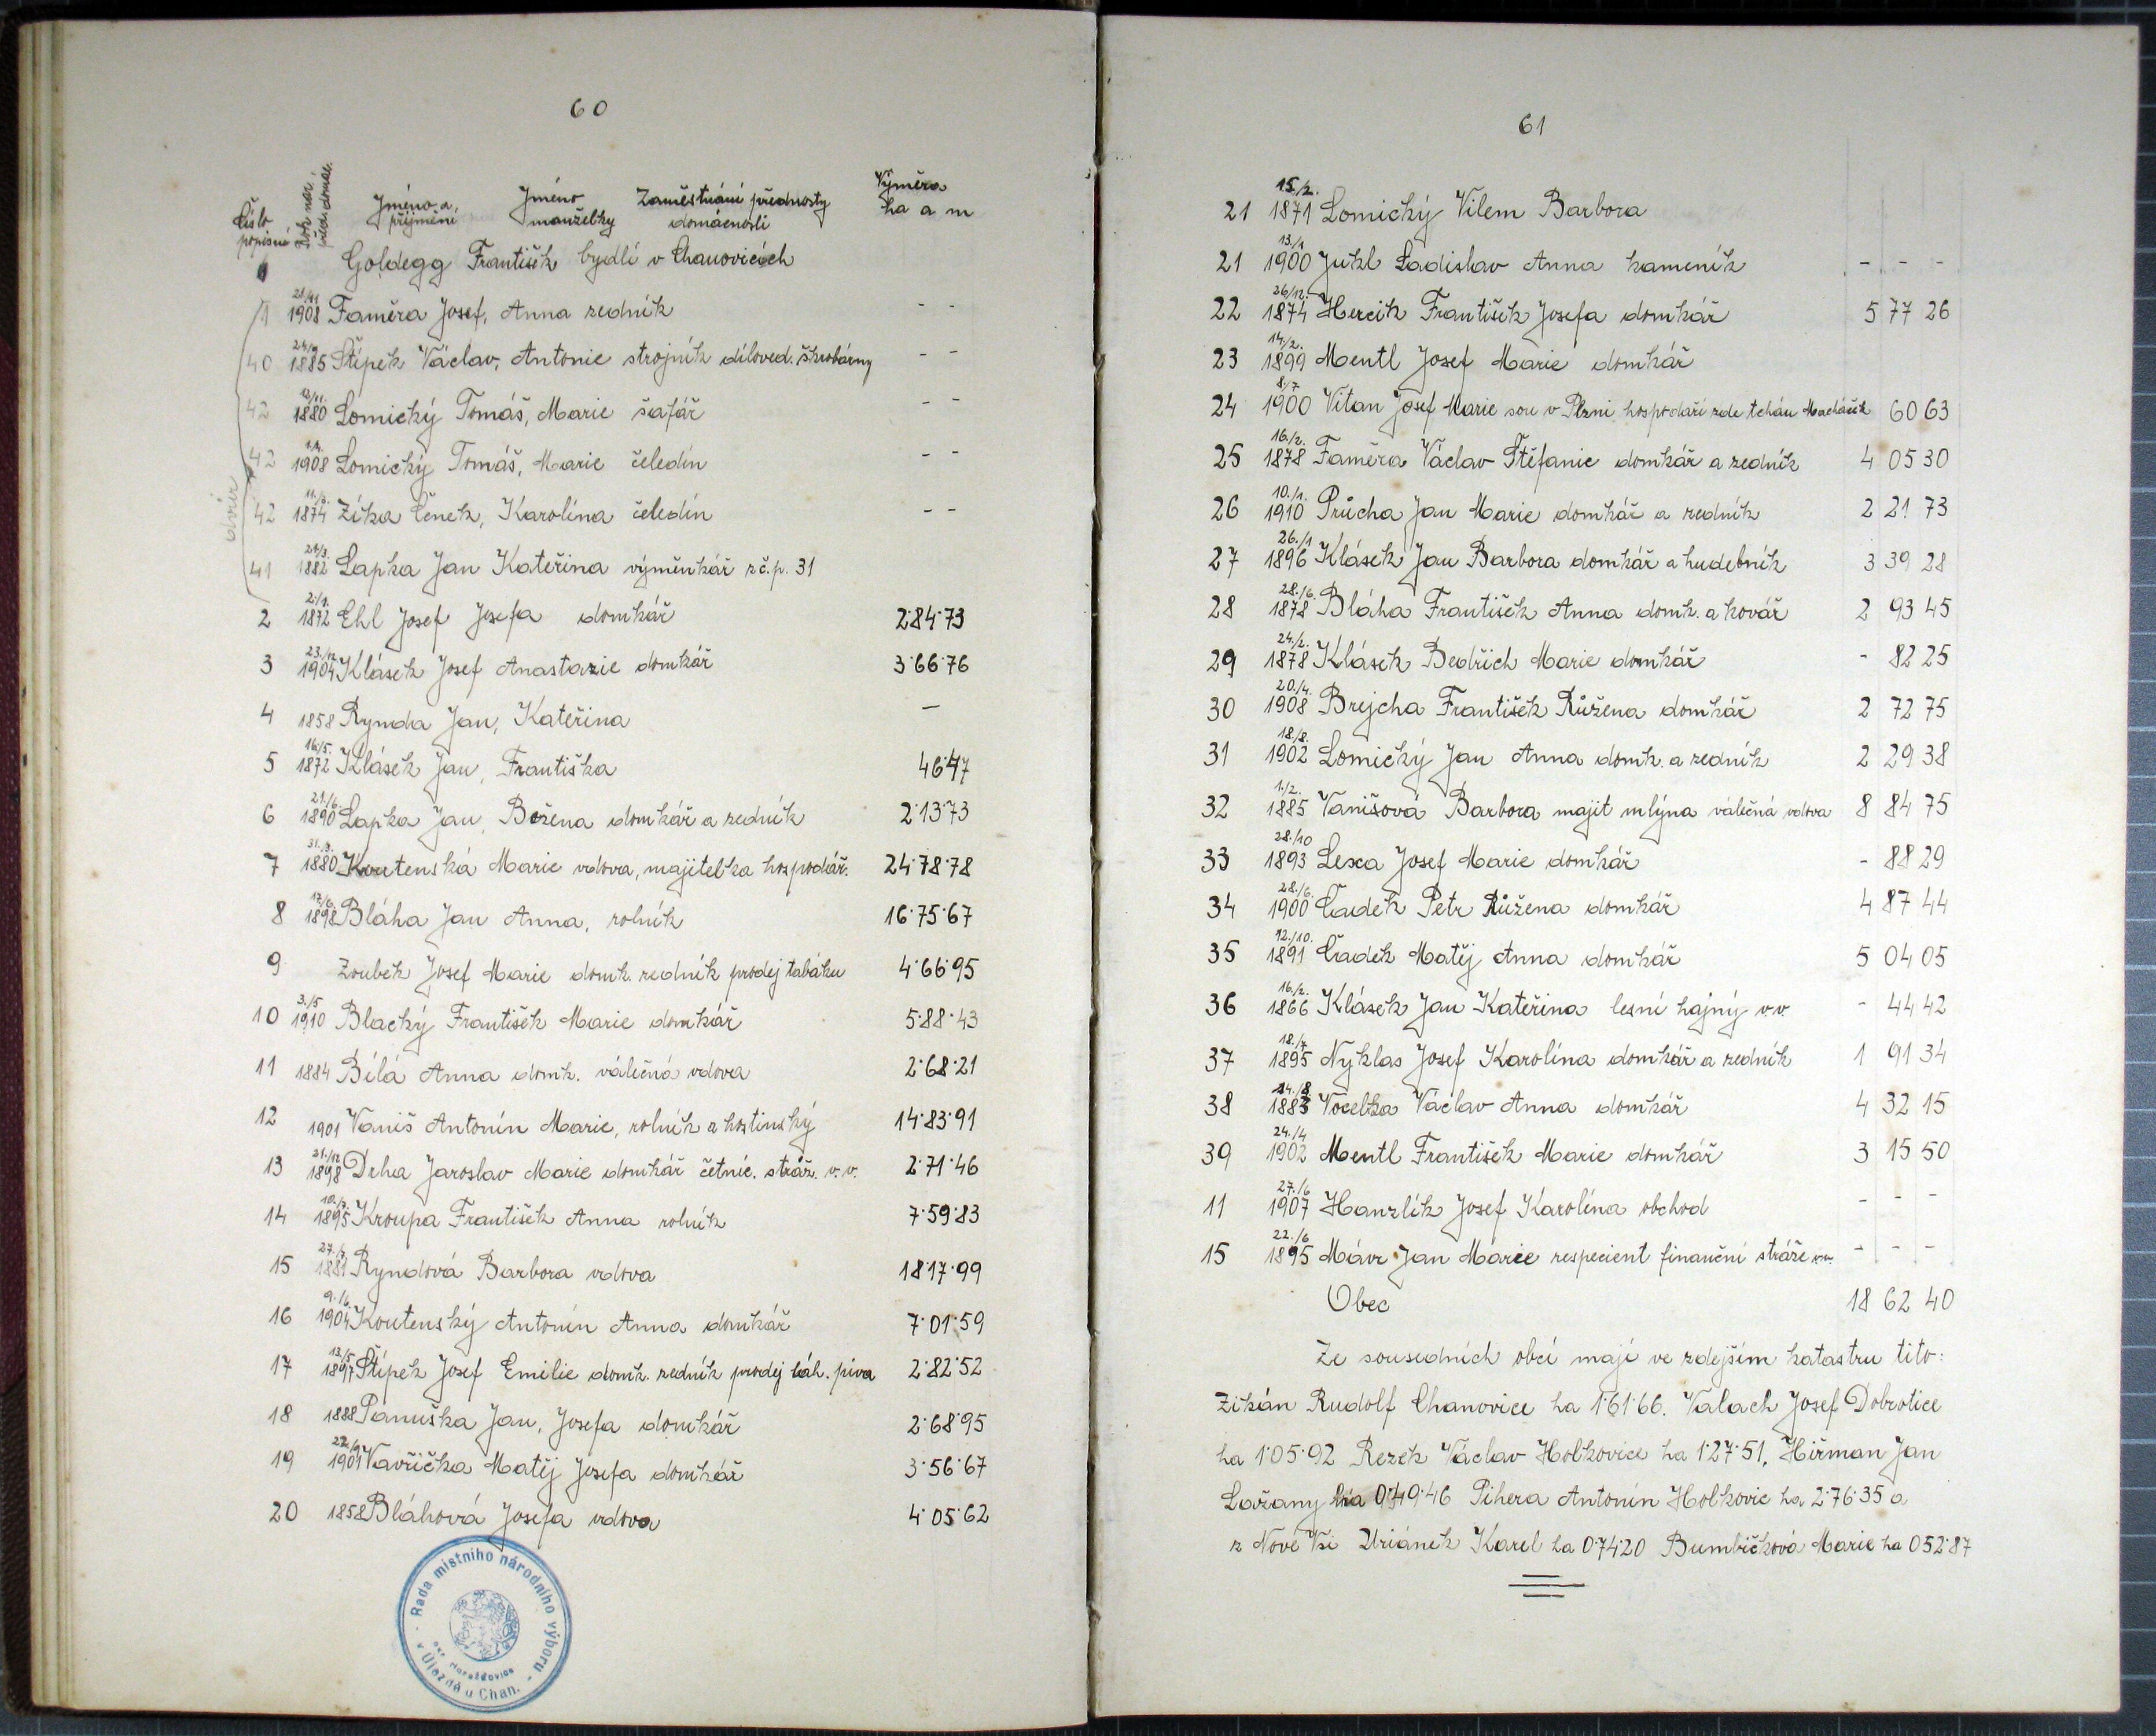 60
Číslo popisné Rok nar. před. domác. Jméno a příjmení Jméno manželky Zaměstnání přednosty domácnosti Výměra ha a m
Goldegg František bydlí v Chanovicích
1 21/11 1908 Faměra Josef, Anna zedník - -
40 1885 Štípek Václav, Antonie strojník díloved. škrobárny - -
42 1880 Lomický Tomáš, Marie šafář - -
42 1908 Lomický Tomáš, Marie čeledín - -
dvůr
42 1874 Zíka Čeněk, Karolína čeledín - -
41 1882 Lapka Jan Kateřina výměnkář z č.p. 31
2 2/1. 1872 Ehl Josef Josefa domkář 2·84·73
3 23/12. 1904 Klásek Josef Anastazie domkář 3·66·76
4 1858 Rynda Jan, Kateřina —
5 16/5. 1872 Klásek Jan, Františka 46·47
6 21/6. 1890 Lapka Jan, Božena domkář a zedník 2·13·73
7 31./3. 1880 Koutenská Marie vdova, majitelka hospodář. 24·78·78
8 17/6. 1898 Bláha Jan Anna, rolník 16·75·67
9 Zoubek Josef Marie domk. zedník prodej tabáku 4·66·95
10 3./5 1910 Blacký František Marie domkář 5·88·43
11 1884 Bílá Anna domk. válečná vdova 2·68·21
12 1901 Vaniš Antonín Marie, rolník a hostinský 14·83·91
13 21./12 1898 Drha Jaroslav Marie domkář četnic. stráž. v.v. 2·71·46
14 1895 Kroupa František Anna rolník 7·59·83
15 27./7. 1881 Ryndová Barbora vdova 18·17·99
16 9./6. 1904 Koutenský Antonín Anna domkář 7·01·59
17 13/5 1897 Štípek Josef Emilie domk. zedník prodej láh. piva 2·82·52
18 1888 Panuška Jan, Josefa domkář 2·68·95
19 1901 Vavřička Matěj Josefa domkář 3·56·67
20 1858 Bláhová Josefa vdova 4·05·62
Rada místního národního výboru
v Újezdě u Chan.
okr. Horažďovice
61
21 15./2. 1871 Lomický Vilem Barbora
21 13/1 1900 Jukl Ladislav Anna kameník - - -
22 26/12. 1874 Hercik František Josefa domkář 5 77 26
23 14/2. 1899 Mentl Josef Marie domkář
24 8/7 1900 Vitan Josef Marie sou v Plzni hospodaří zde tchán Macháček 60 63
25 16./2. 1878 Faměra Václav Štěfanie domkář a zedník 4 05 30
26 10./1. 1910 Průcha Jan Marie domkář a zedník 2 21 73
27 26./1 1896 Klásek Jan Barbora domkář a hudebník 3 39 28
28 28./6. 1878 Bláha František Anna domk. a kovář 2 93 45
29 24./2. 1878 Klásek Bedřich Marie domkář - 82 25
30 20./4. 1908 Brejcha František Růžena domkář 2 72 75
31 18/8. 1902 Lomický Jan Anna domk. a zedník 2 29 38
32 1./2. 1885 Vanišová Barbora majit mlýna válečná vdova 8 84 75
33 28./10 1893 Lexa Josef Marie domkář - 88 29
34 28./6. 1900 Čadek Petr Růžena domkář 4 87 44
35 12./10. 1891 Čadek Matěj Anna domkář 5 04 05
36 16./2. 1866 Klásek Jan Kateřina lesní hajný v.v - 44 42
37 18./7 1895 Nyklas Josef Karolína domkář a zedník 1 91 34
38 14./8 1883 Vocelka Václav Anna domkář 4 32 15
39 24./4 1902 Mentl František Marie domkář 3 15 50
11 27./6 1907 Hanzlík Josef Karolína obchod - - -
15 22./6 1895 Mávr Jan Marie respecient finanční stráže v.v. - - -
Obec 18 62 40
Ze sousedních obcí mají ve zdejším katastru tito:
Zikán Rudolf Chanovice ha 1·61·66. Valach Josef Dobrotice
ha 1·05·92 Rezek Václav Holkovice ha 1·27·51. Hiřman Jan
Lažany ha 0·49·46 Pihera Antonín Holkovic ha 2·76·35 a
z Nové Vsi Uriánek Karel ha 0·74·20 Bumbičková Marie ha 0·52·87